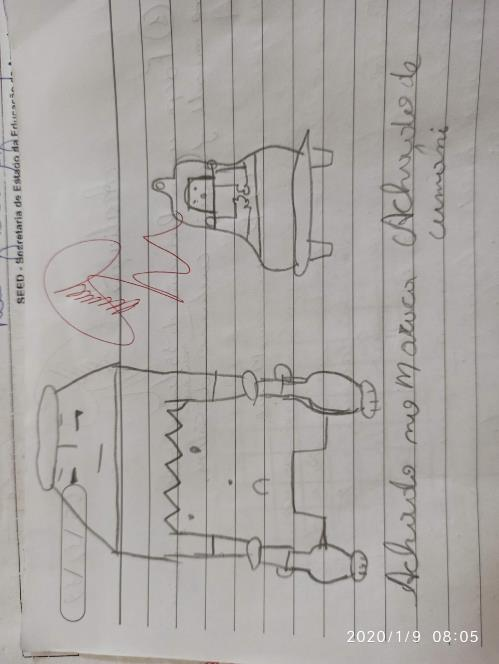 SEED - Secretaria de Estado da Educação
Achado no Maruca Achado do
cunani
2020/1/9 08:05